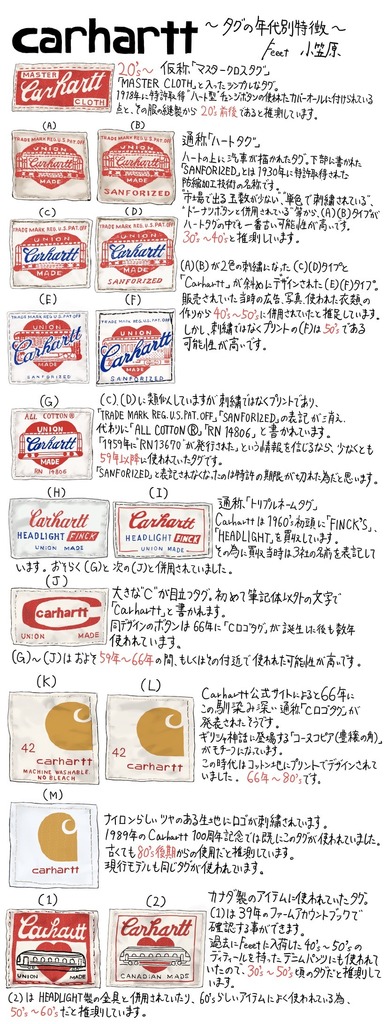 〜タグの年代別特徴〜
carhartt
feeet 小笠原
MASTER
Carhartt
CLOTH
20's〜 仮称「マスタークロスタグ」
「MASTER CLOTH」と入ったシンプルなタグ。
1918年に特許取得"ハート型"チェンジボタンの使われたカバーオールに付けられている
点と、その服の縫製から20's前後であると推測しています。
(A) (B)
TRADE MARK REG.U.S.PAT.OFF.
UNION
Carhartt
MADE
TRADE MARK REG.U.S.PAT.OFF.
UNION
Carhartt
MADE
SANFORIZED
通称「ハートタグ」
ハートの上に汽車が描かれたタグ。下部に書かれた
「SANFORIZED」とは1930年に特許取得された
防縮加工技術の名称です。
"市場で出る玉数が少ない","単色で刺繍されている",
"ドーナツボタンと併用されている"等から、(A)(B)タイプが
ハートタグの中でも一番古い可能性が高いです。
30's〜40'sと推測しています。
(C) (D)
TRADE MARK REG.U.S.PAT.OFF.
UNION
Carhartt
MADE
TRADE MARK REG.U.S.PAT.OFF.
UNION
Carhartt
MADE
SANFORIZED
(A)(B)が2色の刺繍になった(C)(D)タイプと
「Carhartt」が斜めにデザインされた(E)(F)タイプ。
販売されていた当時の広告、写真、使われた衣類の
作りから40's〜50'sに併用されていたと推定しています。
しかし、刺繍ではなくプリントの(F)は50'sである
可能性が高いです。
(E) (F)
TRADE MARK REG.U.S.PAT.OFF.
UNION
Carhartt
MADE
SANFORIZED
TRADE MARK REG.U.S.PAT.OFF.
UNION
Carhartt
MADE
SANFORIZED
(G)
ALL COTTON®
UNION
Carhartt
MADE
RN 14806
(C),(D)に類似していますが刺繍ではなくプリントであり、
「TRADE MARK REG.U.S.PAT.OFF」「SANFORIZED」の表記が消え、
代わりに「ALL COTTON®」「RN 14806」と書かれています。
「1959年に"RN13670"が発行された」という情報を信じるなら、少なくとも
59年以降に使われていたタグです。
「SANFORIZED」と表記されなくなったのは特許の期限が切れた為だと思います。
(H) (I)
Carhartt
HEADLIGHT FINCK
UNION MADE
Carhartt
HEADLIGHT FINCK
UNION MADE
通称「トリプルネームタグ」
Carharttは1960's初頭に「FINCK'S」、
「HEADLIGHT」を買収しています。
その為に買収当時は3社の名前を表記して
います。おそらく(G)と次の(J)と併用されていました。
(J)
Carhartt
UNION MADE
大きな"C"が目立つタグ。初めて筆記体以外の文字で
「Carhartt」と書かれます。
同デザインのボタンは66年に「Cロゴタグ」が誕生した後も数年
使われています。
(G)〜(J)はおよそ59年〜66年の間、もしくはその付近で使われた可能性が高いです。
(K) (L)
42
carhartt
MACHINE WASHABLE
NO BLEACH
42
carhartt
Carhartt公式サイトによると66年に
この馴染み深い通称「Cロゴタグ」が
発表されたそうです。
ギリシャ神話に登場する「コーヌコピア(豊穣の角)」
がモチーフになっています。
この時代はコットン地にプリントでデザインされて
いました。66年〜80'sです。
(M)
carhartt
ナイロンらしいツヤのある生地にロゴが刺繍されています。
1989年のCarhartt 100周年記念では既にこのタグが使われていました。
古くても80's後期からの使用だと推測しています。
現行モデルも同じタグが使われています。
(1) (2)
Carhartt
UNION MADE
Carhartt
CANADIAN MADE
カナダ製のアイテムに使われていたタグ。
(1)は39年のファームアカウントブックで
確認する事ができます。
過去にfeeetに入荷した40's〜50'sの
ディティールを持ったデニムパンツにも使われて
いたので、30's〜50's頃のタグだと推測して
います。
(2)はHEADLIGHT製の金具と併用されていたり、60'sらしいアイテムによく使われている為、
50's〜60'sだと推測しています。